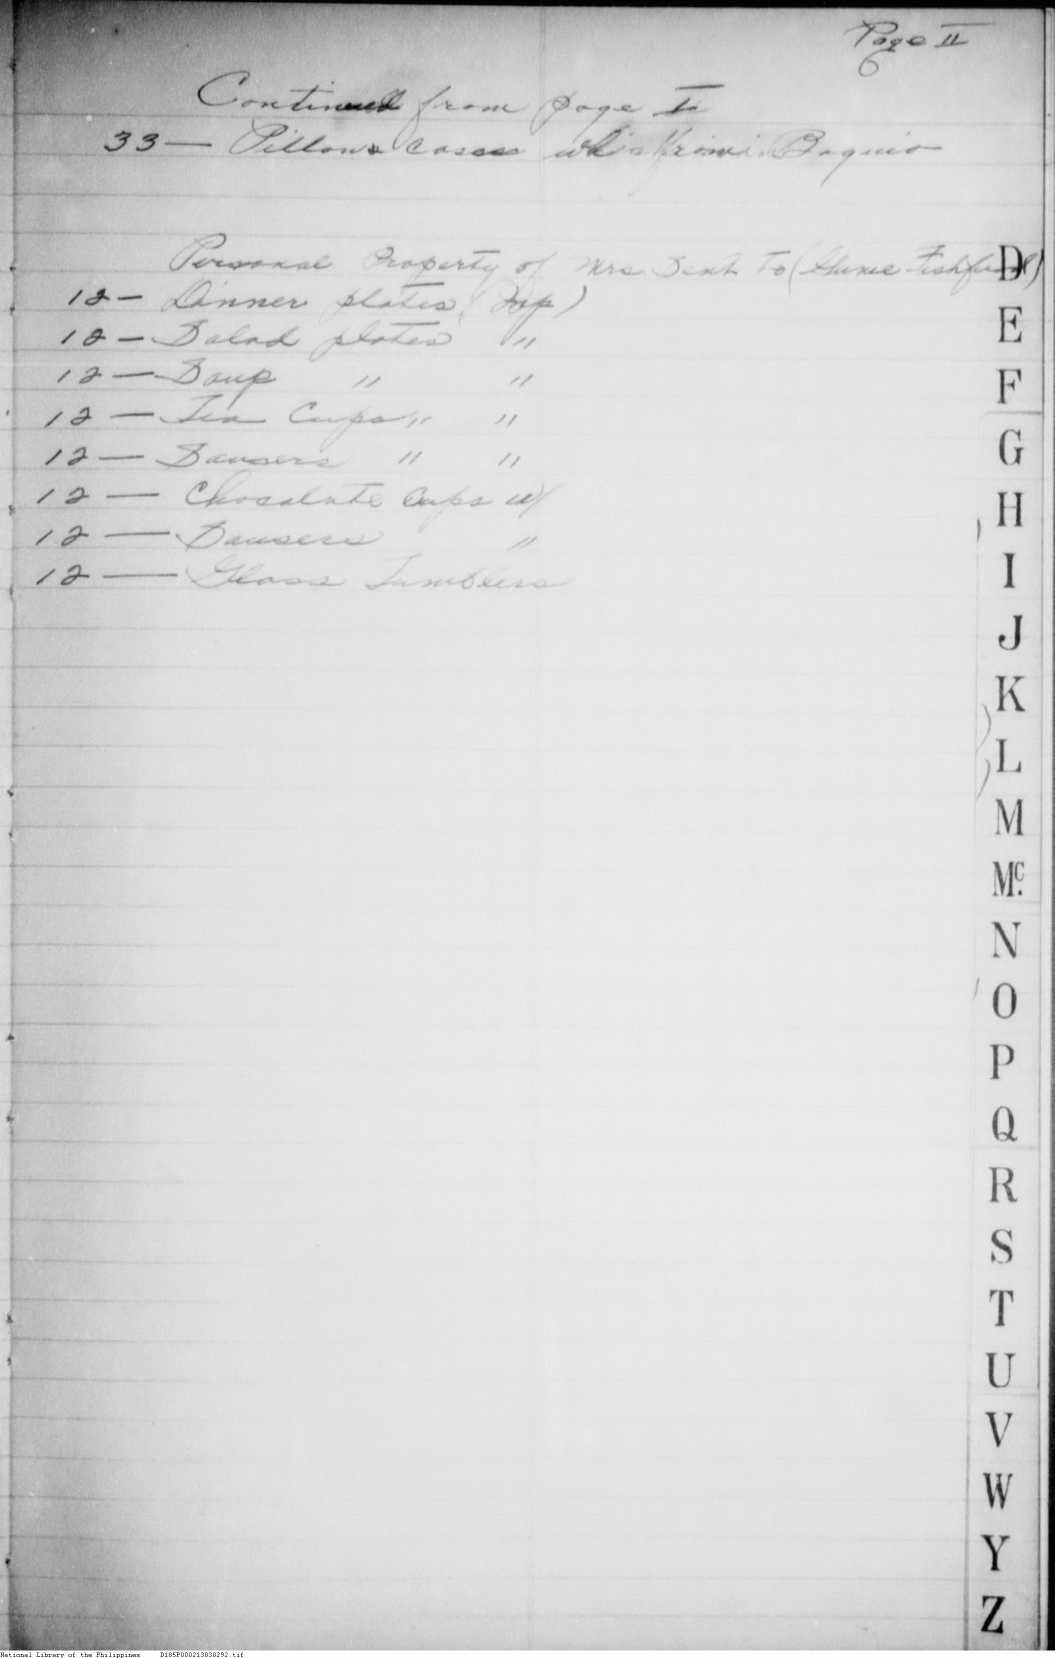 Page II
Continued from page I
33 — Pillows cases Baguio
Personal Property of Mrs Dent to
12 — Dinner plates
12 — Salad plates "
12 — Soup " "
12 — Tea Cups " "
12 — Sausers " "
12 — Chocalate Cups w/
12 — Sausers "
12 — Glass Tumblers
D
E
F
G
H
I
J
K
L
M
Mc.
N
O
P
Q
R
S
T
U
V
W
Y
Z
National Library of the Philippines D185P000213830292.tif